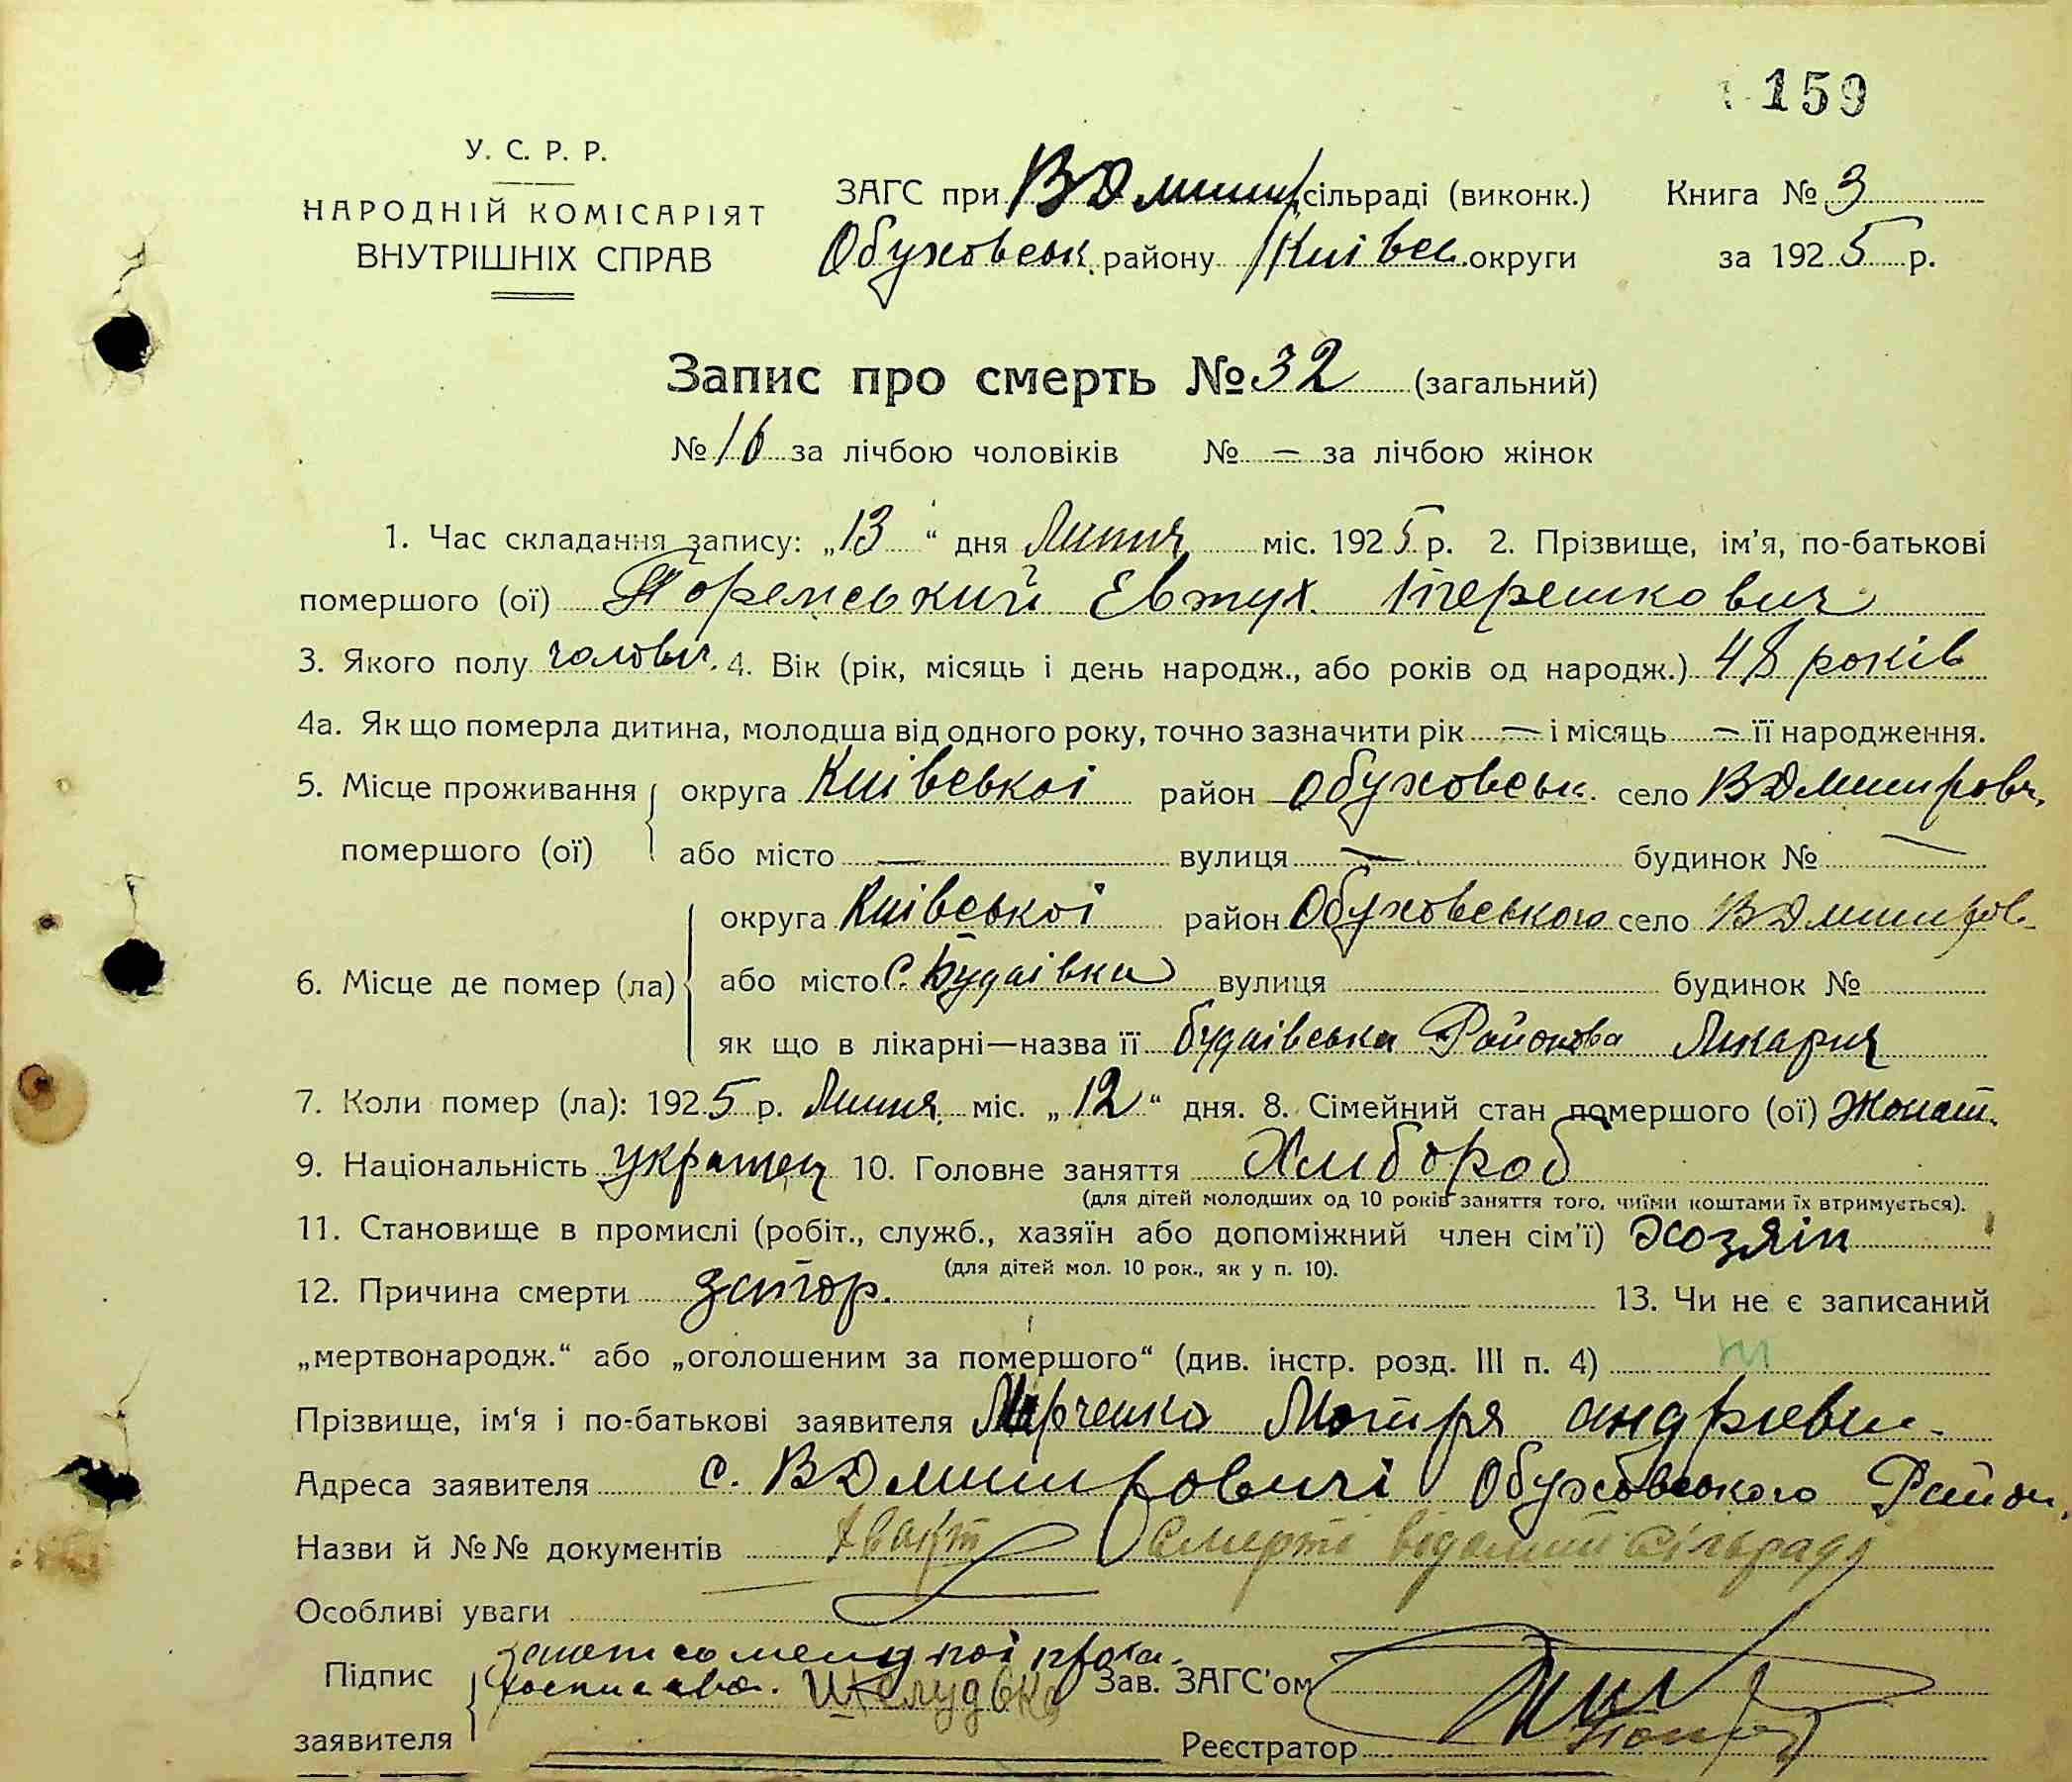 159
У. С. Р. Р.
НАРОДНІЙ КОМІСАРІЯТ
ВНУТРІШНІХ СПРАВ
ЗАГС при ВДмитр сільраді (виконк.) Книга № 3
Обуховськ. району Київс. округи за 1925 р.
Запис про смерть № 32 (загальний)
№ 16 за лічбою чоловіків № — за лічбою жінок
1. Час складання запису: „13“ дня Липня міс. 1925 р. 2. Прізвище, ім’я, по-батькові
помершого (ої) Євтух Терешкович
3. Якого полу чолович. 4. Вік (рік, місяць і день народж., або років од народж.) 48 років
4а. Як що померла дитина, молодша від одного року, точно зазначити рік — і місяць — її народження.
5. Місце проживання округа Київської район Обуховськ. село ВДмитрович.
помершого (ої) або місто — вулиця — будинок № —
округа Київської район Обуховського село ВДмитров
6. Місце де помер (ла) або місто с. Будаівка вулиця будинок №
як що в лікарні—назва її Будаівська Районова Ликарня
7. Коли помер (ла): 1925 р. Липня міс. „12“ дня. 8. Сімейний стан помершого (ої) Жонат.
9. Національність украінец 10. Головне заняття Хлибороб
(для дітей молодших од 10 років заняття того, чиїми коштами їх втримується).
11. Становище в промислі (робіт., служб., хазяїн або допоміжний член сім’ї) Хозяін
(для дітей мол. 10 рок., як у п. 10).
12. Причина смерти запор. 13. Чи не є записаний
„мертвонародж.“ або „оголошеним за помершого“ (див. інстр. розд. III п. 4)
Прізвище, ім‘я і по-батькові заявителя Марченко Мотря андріеви-
Адреса заявителя с. ВДмитровичі Обуховського Район.
Назви й №№ документів Смерті відомий сільраді
Особливі уваги
Підпис
заявителя
Зав. ЗАГС’ом
Реєстратор